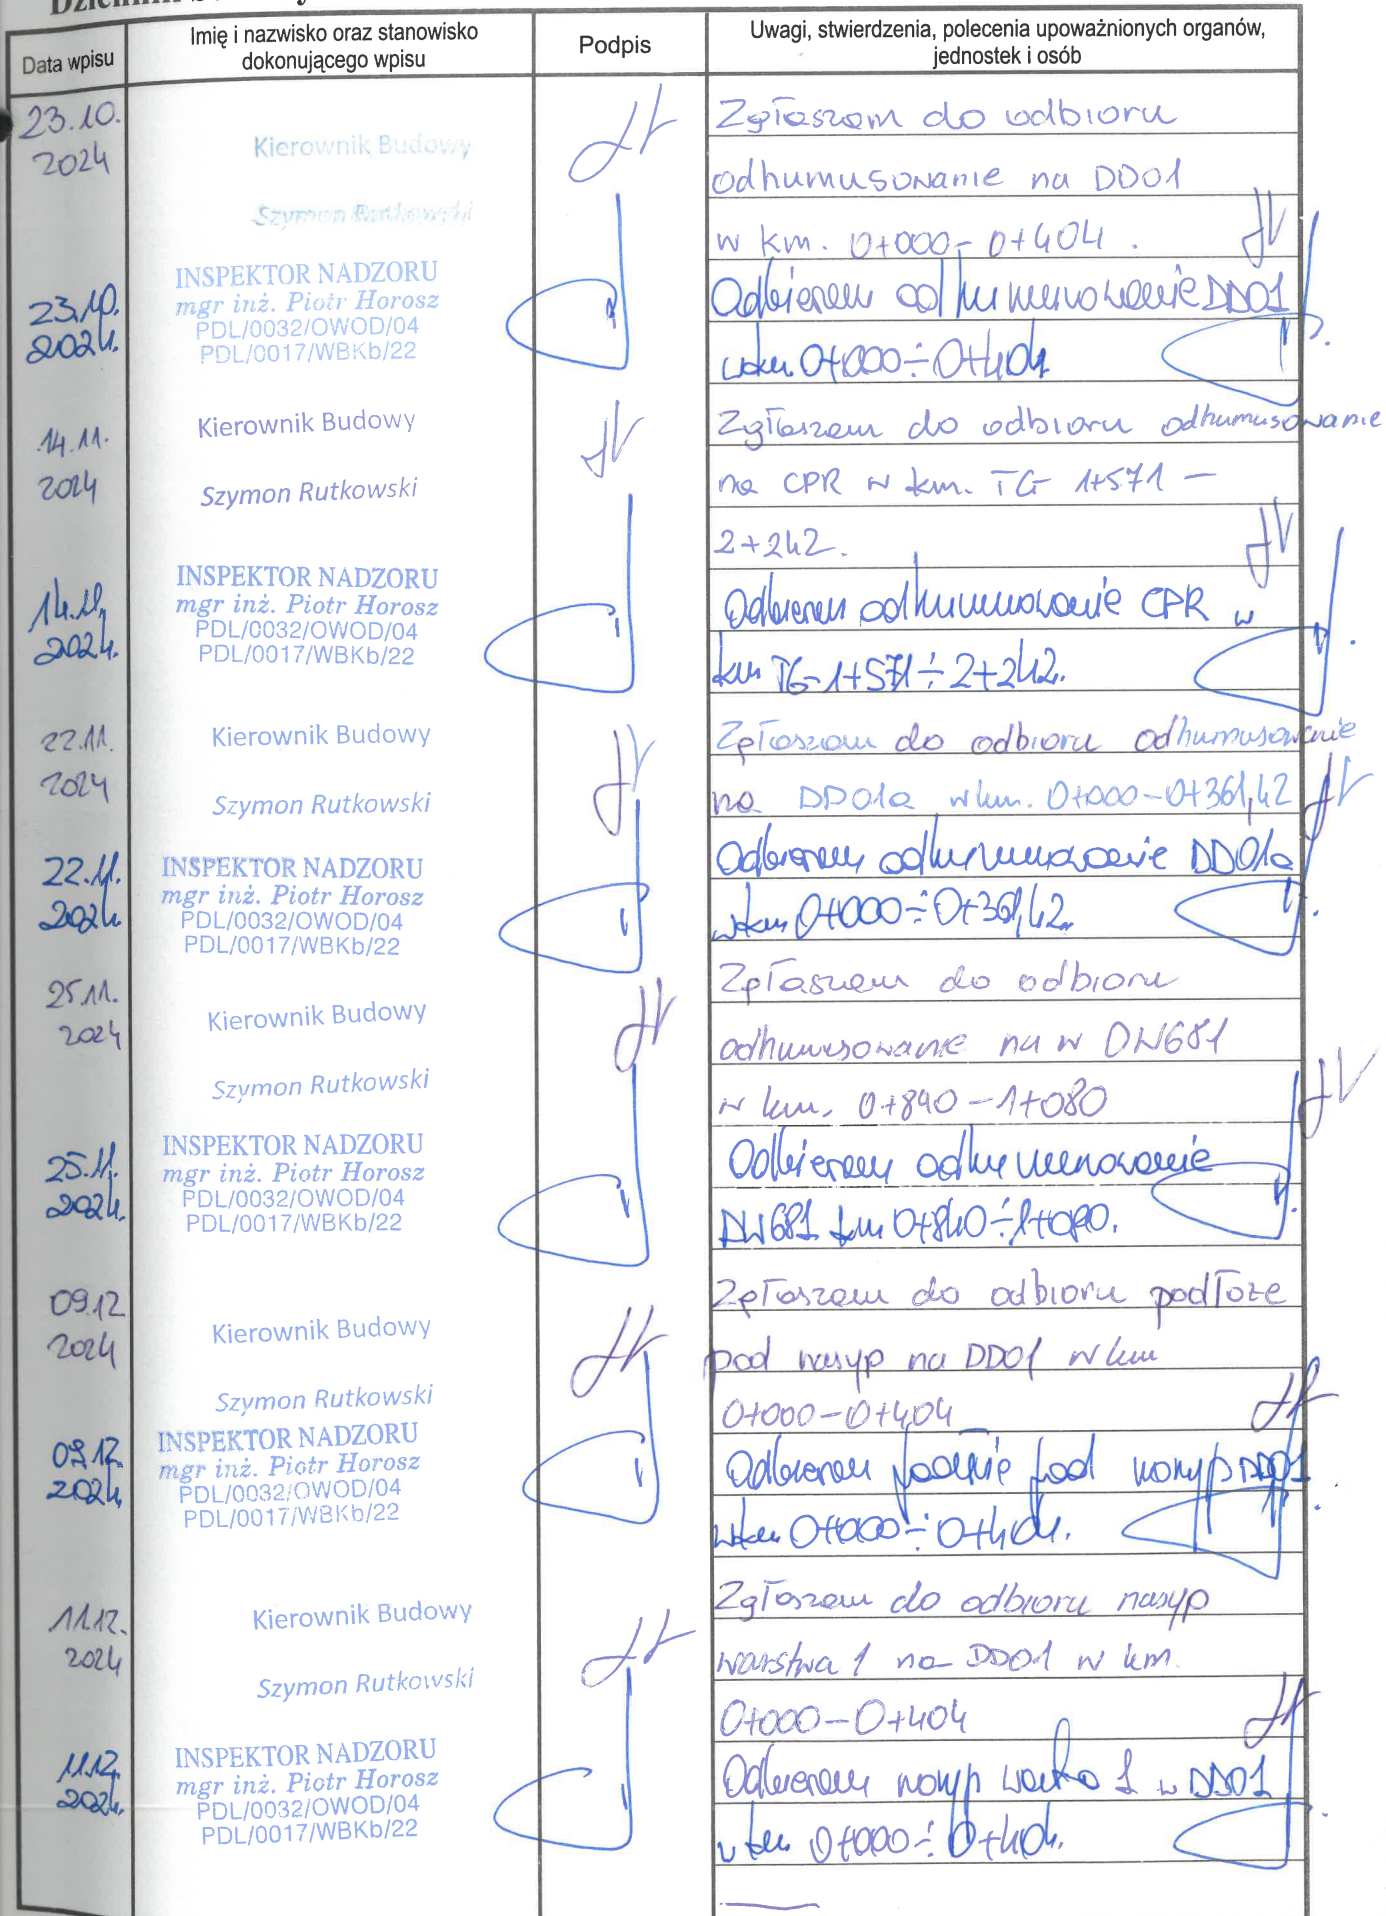 Data wpisu
Imię i nazwisko oraz stanowisko
dokonującego wpisu
Podpis
Uwagi, stwierdzenia, polecenia upoważnionych organów,
jednostek i osób
23.10.
2024
Kierownik Budowy
Szymon Rutkowski
Zgłaszam do odbioru
odhumusowanie na DD01
w km. 0+000-0+404.
23.10.
2024.
INSPEKTOR NADZORU
mgr inż. Piotr Horosz
PDL/0032/OWOD/04
PDL/0017/WBKb/22
Odbieram odhumusowanie DD01
w km 0+000÷0+404
14.11.
2024
Kierownik Budowy
Szymon Rutkowski
Zgłaszam do odbioru odhumusowanie
na CPR w km. TG 1+571 -
2+242.
14.11.
2024.
INSPEKTOR NADZORU
mgr inż. Piotr Horosz
PDL/0032/OWOD/04
PDL/0017/WBKb/22
Odbieram odhumusowanie CPR w
km TG-1+571÷2+242.
22.11.
2024
Kierownik Budowy
Szymon Rutkowski
Zgłaszam do odbioru odhumusowanie
na DD01a w km. 0+000-0+361,42
22.11.
2024.
INSPEKTOR NADZORU
mgr inż. Piotr Horosz
PDL/0032/OWOD/04
PDL/0017/WBKb/22
Odbieram odhumusowanie DD01a
w km 0+000÷0+361,42.
25.11.
2024
Kierownik Budowy
Szymon Rutkowski
Zgłaszam do odbioru
odhumusowanie na w DW681
w km. 0+840-1+080
25.11.
2024.
INSPEKTOR NADZORU
mgr inż. Piotr Horosz
PDL/0032/OWOD/04
PDL/0017/WBKb/22
Odbieram odhumusowanie
DW681 km 0+840÷1+080.
09.12
2024
Kierownik Budowy
Szymon Rutkowski
Zgłaszam do odbioru podłoże
pod nasyp na DD01 w km
0+000-0+404
09.12.
2024.
INSPEKTOR NADZORU
mgr inż. Piotr Horosz
PDL/0032/OWOD/04
PDL/0017/WBKb/22
Odbieram podłoże pod nasyp DD01
w km 0+000÷0+404.
11.12.
2024
Kierownik Budowy
Szymon Rutkowski
Zgłaszam do odbioru nasyp
warstwa 1 na DD01 w km.
0+000-0+404
11.12.
2024.
INSPEKTOR NADZORU
mgr inż. Piotr Horosz
PDL/0032/OWOD/04
PDL/0017/WBKb/22
Odbieram nasyp 1 w DD01
w km 0+000÷0+404.